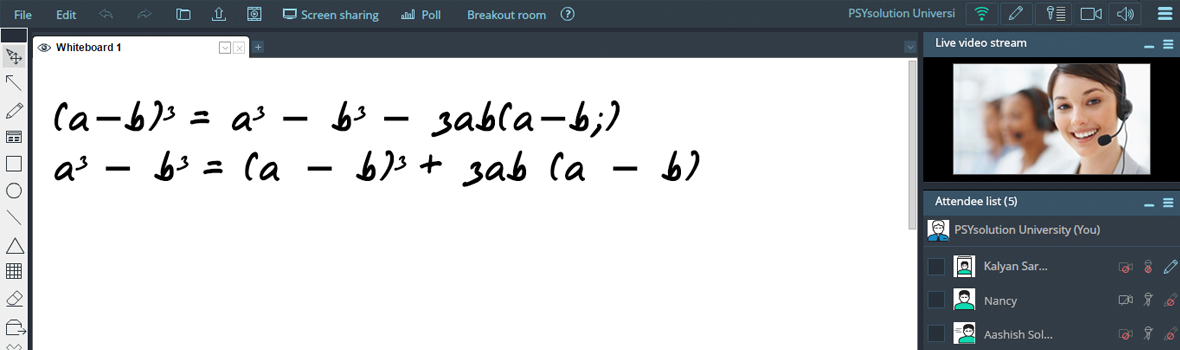 File Edit Screen sharing Poll Breakout room ? PSYsolution Universi
Whiteboard 1 +
Live video stream
(a-b)³ = a³ - b³ - 3ab(a-b;)
a³ - b³ = (a - b)³ + 3ab (a - b)
Attendee list (5)
PSYsolution University (You)
Kalyan Sar...
Nancy
Aashish Sol...